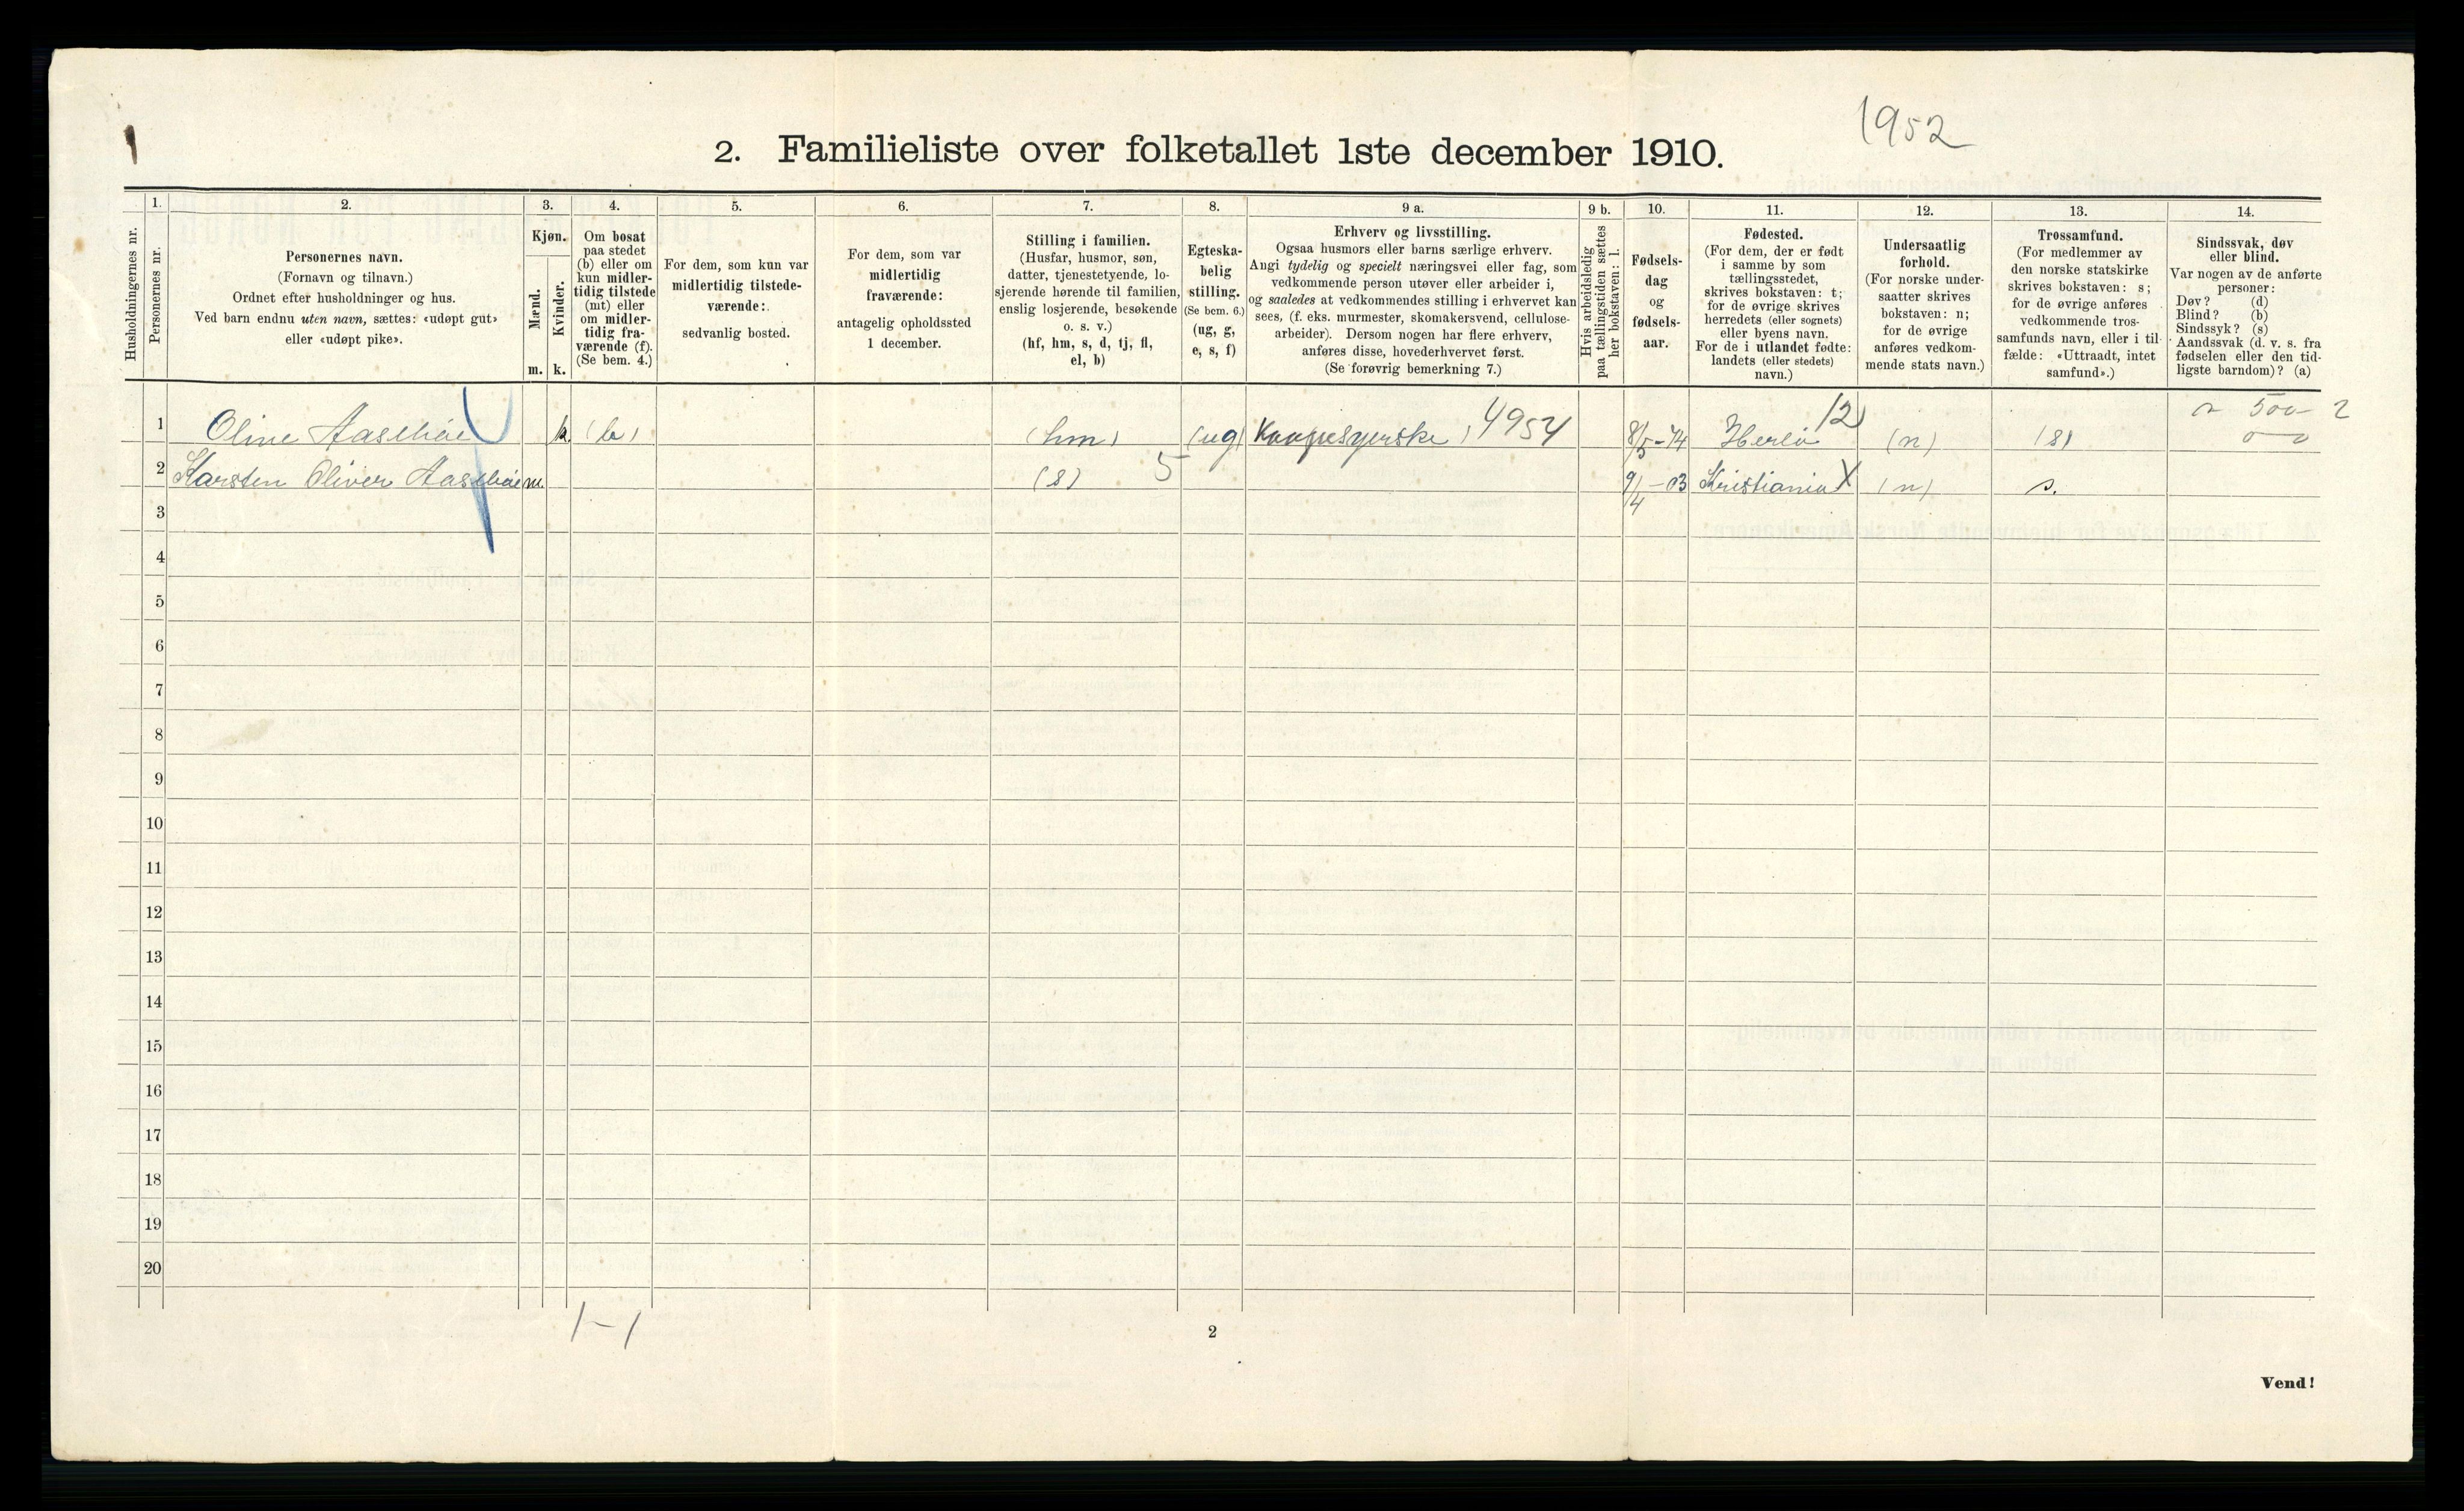 1952
2. Familieliste over folketallet 1ste december 1910.
Husholdningernes nr.
1.
Personernes nr.
2.
Personernes navn.
(Fornavn og tilnavn.)
Ordnet efter husholdninger og hus.
Ved barn endnu uten navn, sættes: «udøpt gut»
eller «udøpt pike».
3.
Kjøn.
Mænd.
Kvinder.
m. k.
4.
Om bosat
paa stedet
(b) eller om
kun midler-
tidig tilstede
(mt) eller
om midler-
tidig fra-
værende (f).
(Se bem. 4.)
5.
For dem, som kun var
midlertidig tilstede-
værende:
sedvanlig bosted.
6.
For dem, som var
midlertidig
fraværende:
antagelig opholdssted
1 december.
7.
Stilling i familien.
(Husfar, husmor, søn,
datter, tjenestetyende, lo-
sjerende hørende til familien,
enslig losjerende, besøkende
o. s. v.)
(hf, hm, s, d, tj, fl,
el, b)
8.
Egteska-
belig
stilling.
(Se bem. 6.)
(ug, g,
e, s, f)
9 a.
Erhverv og livsstilling.
Ogsaa husmors eller barns særlige erhverv.
Angi tydelig og specielt næringsvei eller fag, som
vedkommende person utøver eller arbeider i,
og saaledes at vedkommendes stilling i erhvervet kan
sees, (f. eks. murmester, skomakersvend, cellulose-
arbeider). Dersom nogen har flere erhverv,
anføres disse, hovederhvervet først.
(Se forøvrig bemerkning 7.)
9 b.
Hvis arbeidsledig
paa tællingstiden sættes
her bokstaven: l.
10.
Fødsels-
dag
og
fødsels-
aar.
11.
Fødested.
(For dem, der er født
i samme by som
tællingsstedet,
skrives bokstaven: t;
for de øvrige skrives
herredets (eller sognets)
eller byens navn.
For de i utlandet fødte:
landets (eller stedets)
navn.)
12.
Undersaatlig
forhold.
(For norske under-
saatter skrives
bokstaven: n;
for de øvrige
anføres vedkom-
mende stats navn.)
13.
Trossamfund.
(For medlemmer av
den norske statskirke
skrives bokstaven: s;
for de øvrige anføres
vedkommende tros-
samfunds navn, eller i til-
fælde: «Uttraadt, intet
samfund».)
14.
Sindssvak, døv
eller blind.
Var nogen av de anførte
personer:
Døv? (d)
Blind? (b)
Sindssyk? (s)
Aandssvak (d. v. s. fra
fødselen eller den tid-
ligste barndom)? (a)
1 Oline k. (b) (hm) (ug) 4954 8/5-74 12 (n) (s) 500- 2
2 Karsten Oliver m. (s) 5 9/4-03 Kristiania X (n) s.
3
4
5
6
7
8
9
10
11
12
13
14
15
16
17
18
19
20
1-1
2
Vend!